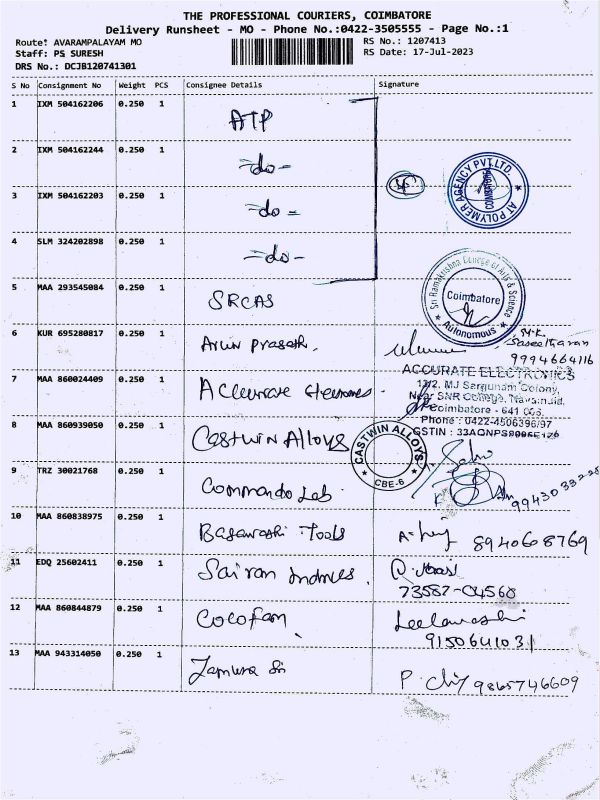 THE PROFESSIONAL COURIERS, COIMBATORE
Delivery Runsheet - MO - Phone No.:0422-3505555 - Page No.:1
Route: AVARAMPALAYAM MO RS No.: 1207413
Staff: PS SURESH RS Date: 17-Jul-2023
DRS No.: DCJB120741301
S No Consignment No Weight PCS Consignee Details Signature
1 IXM 504162206 0.250 1 ATP
2 IXM 504162244 0.250 1 -do-
AT POLYMER AGENCY PVT.LTD. COIMBATORE
3 IXM 504162203 0.250 1 -do-
4 SLM 324202898 0.250 1 -do-
5 MAA 293545084 0.250 1 SRCAS
Sri Ramakrishna College of Arts & Science
Coimbatore
Autonomous
6 KUR 695280817 0.250 1 Arun Prasath.
9994664116
7 MAA 860024409 0.250 1 Accurate
ACCURATE ELECTRONICS
Colony,
Near SNR College,
Coimbatore - 641 006.
Phone : 0422-4506396/97
GSTIN :
8 MAA 860939050 0.250 1 Castwin Alloys
CASTWIN ALLOYS
CBE-6
9 TRZ 30021768 0.250 1 Commando Lab.
10 MAA 860838975 0.250 1 Tools 8940608769
11 EDQ 25602411 0.250 1 Sairan
73582-04568
12 MAA 860844879 0.250 1 Cocofam
9150641031
13 MAA 943314050 0.250 1 Jamuna 9865746609